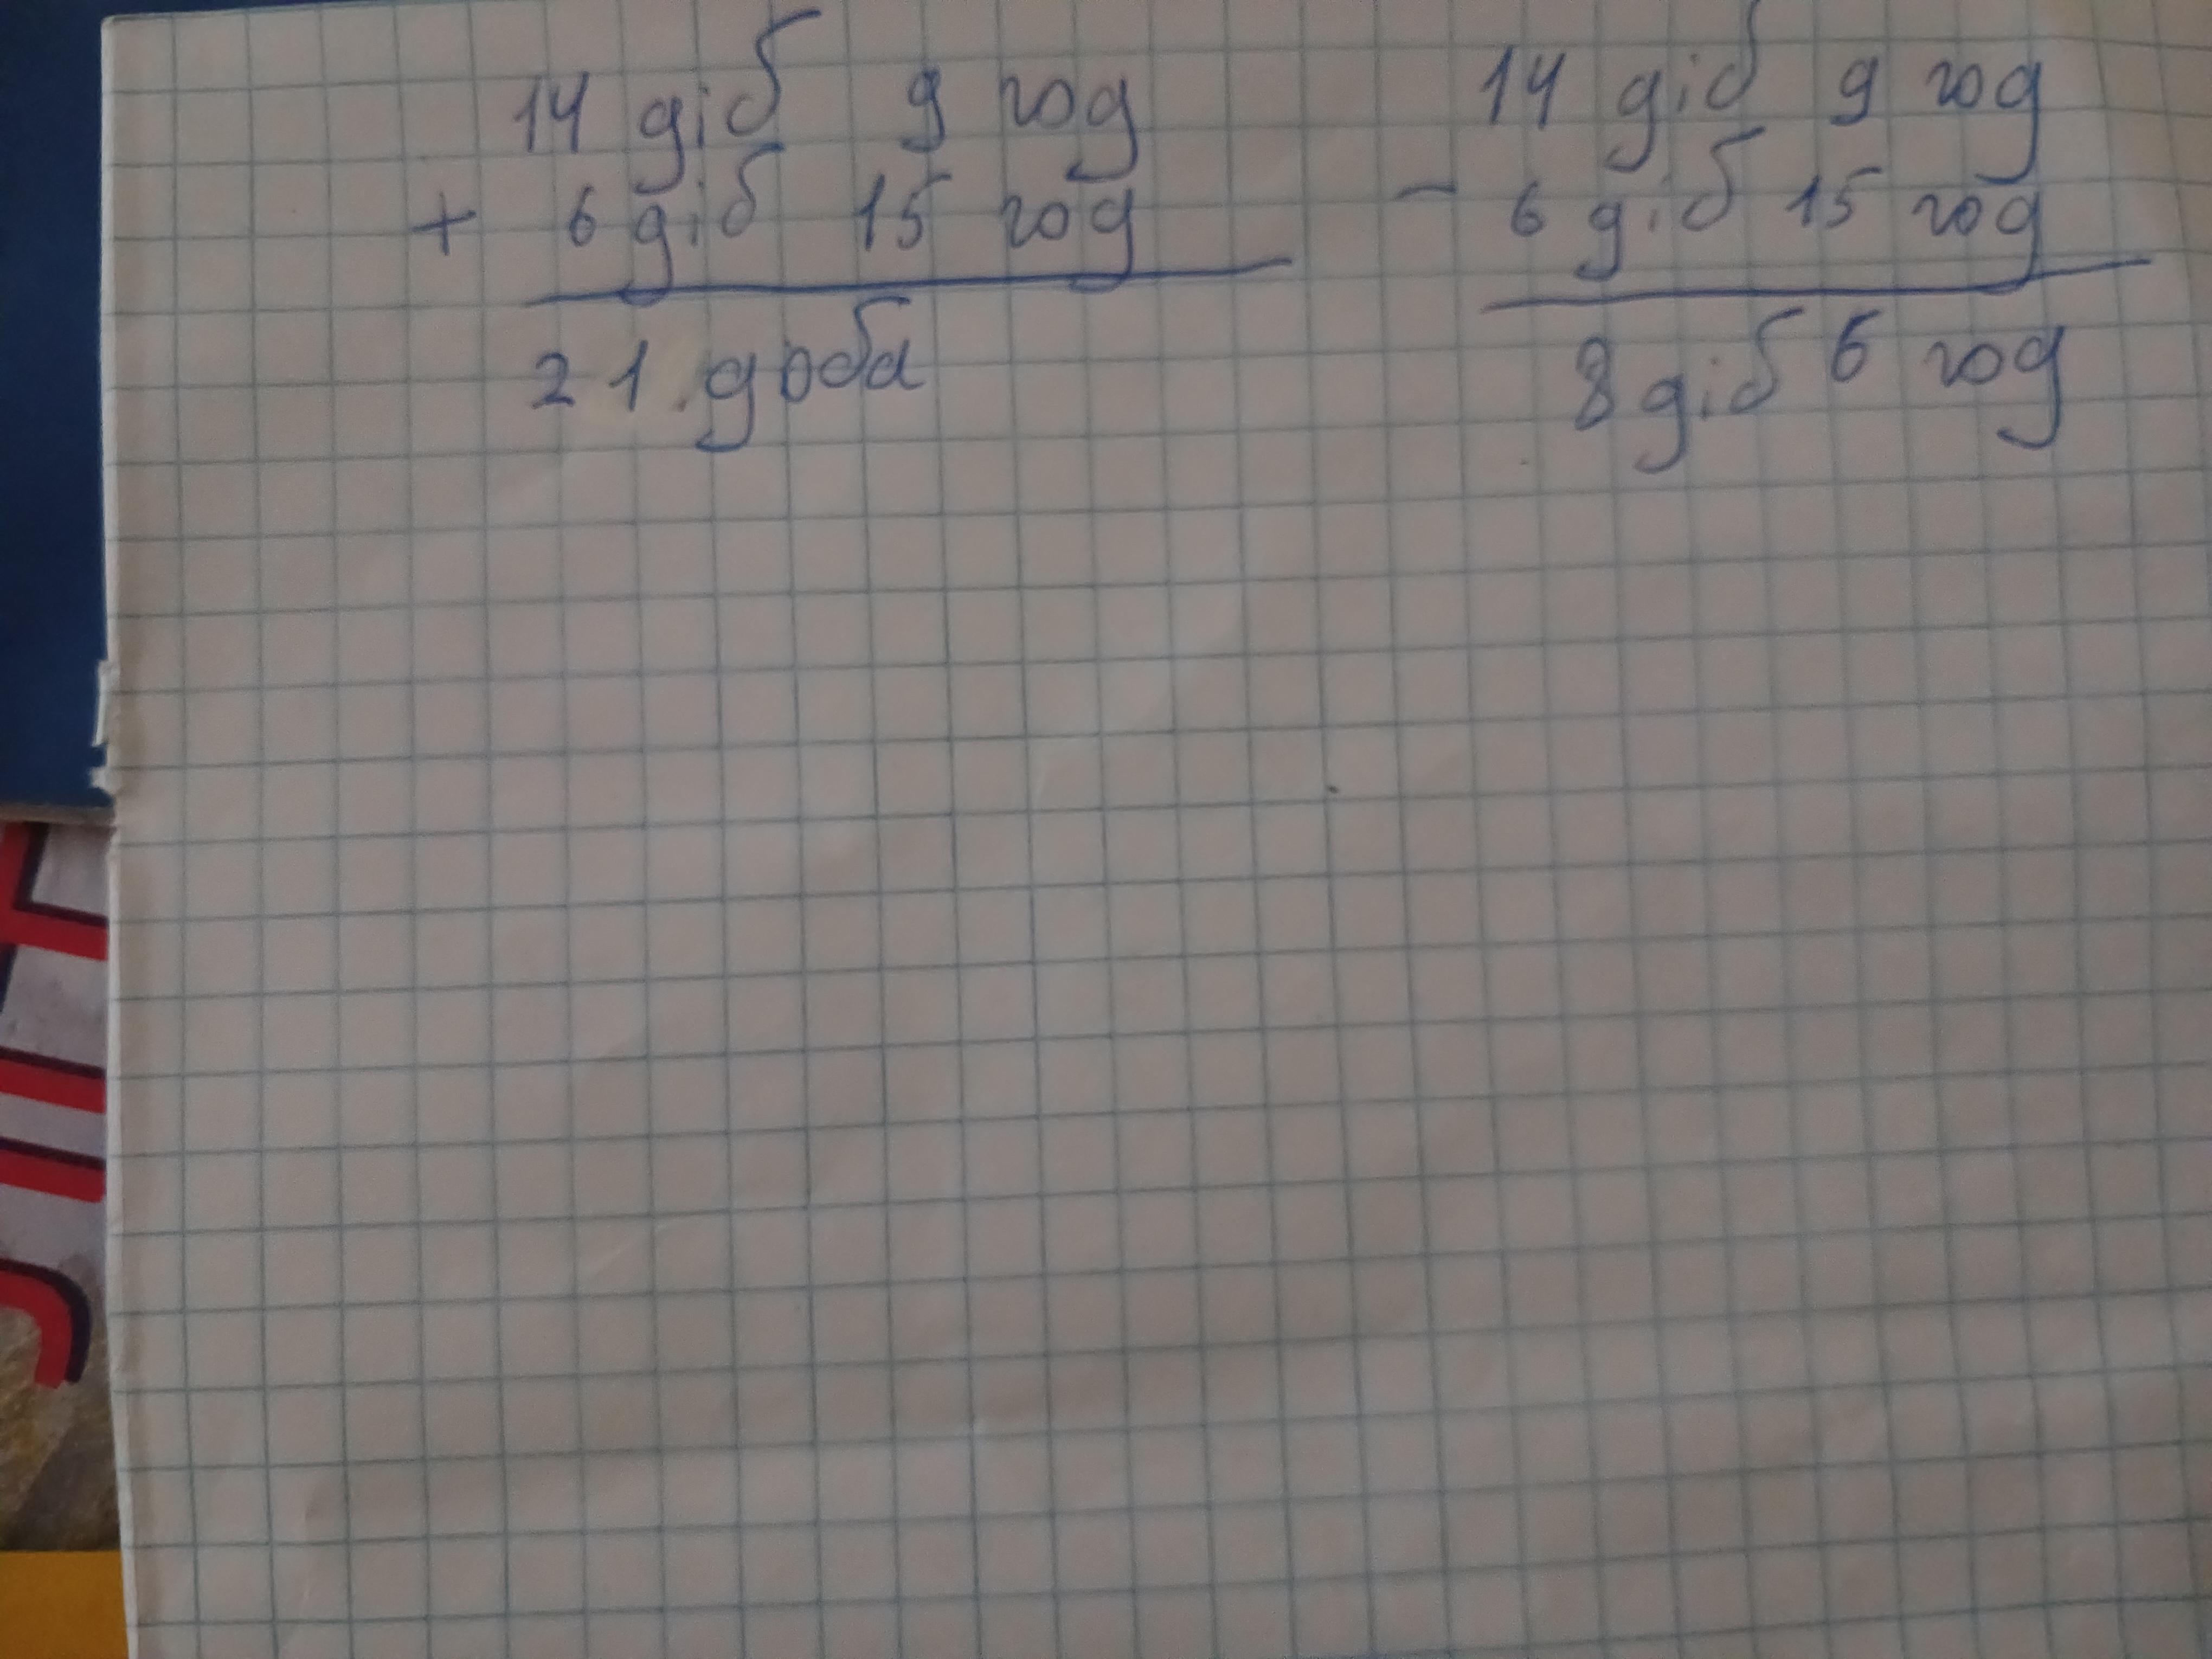 14 діб 9 год
+ 6 діб 15 год
21 доба
14 діб 9 год
- 6 діб 15 год
8 діб 6 год